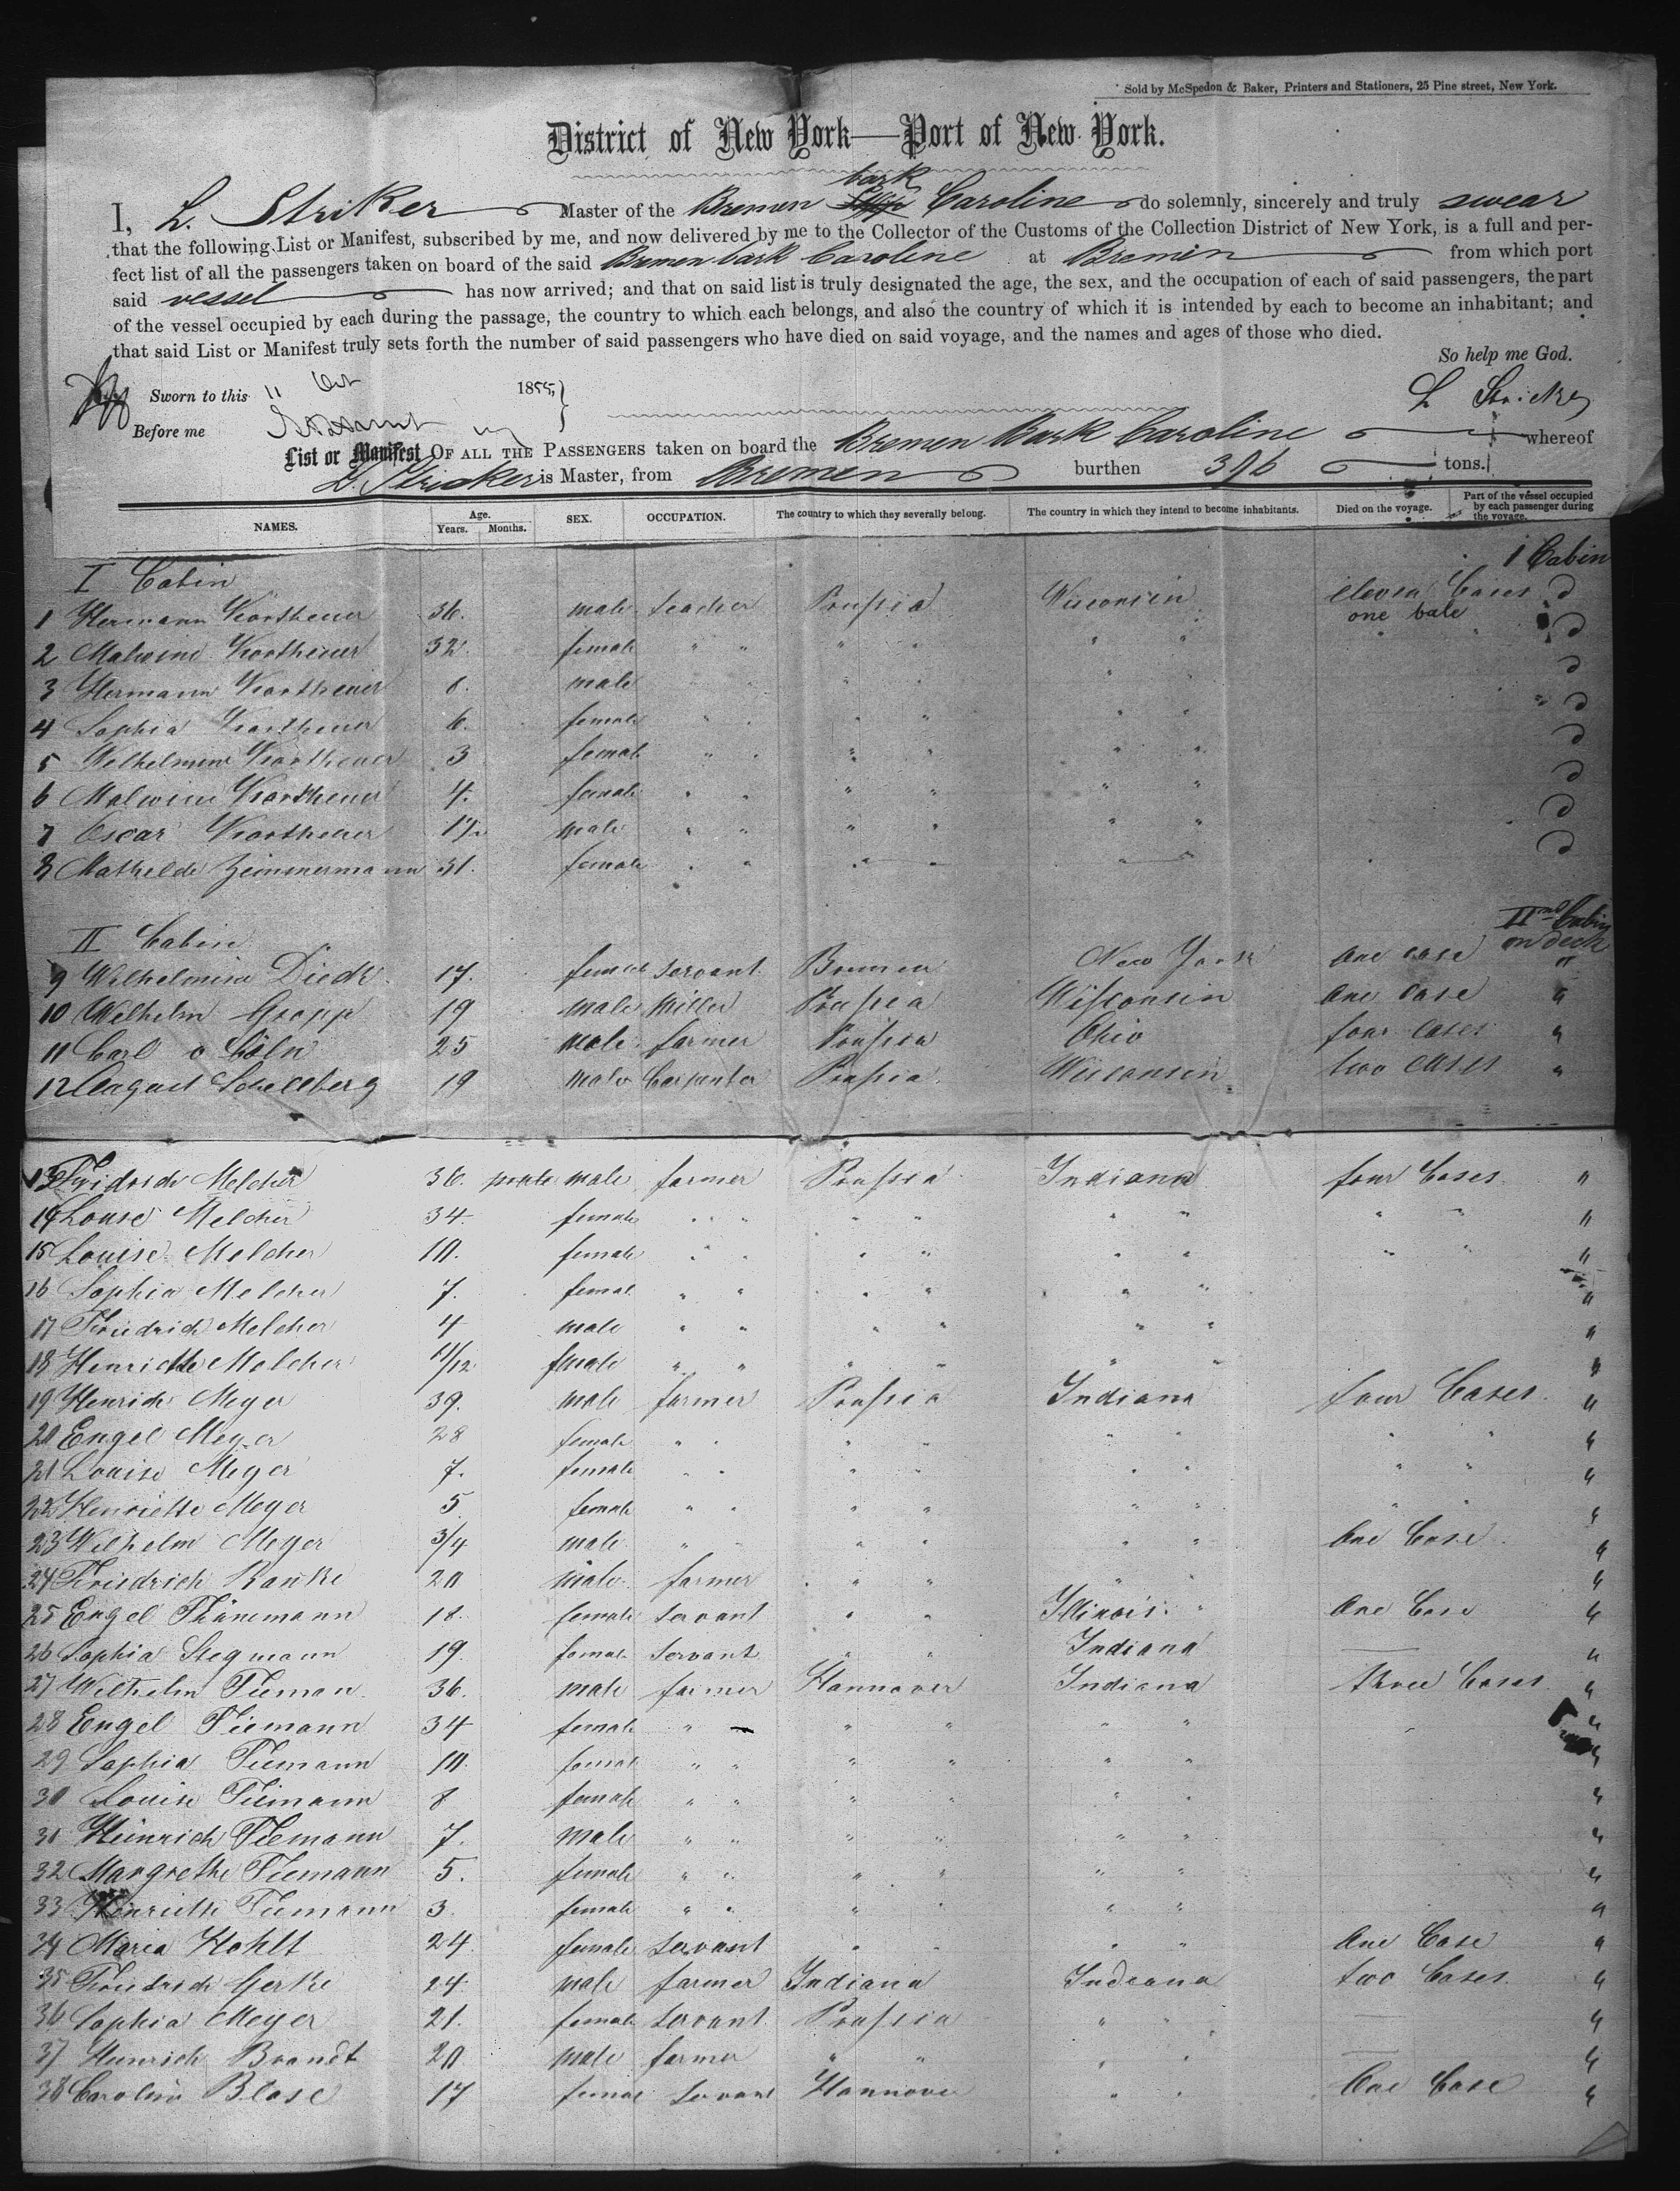 Sold by McSpedon & Baker, Printers and Stationers, 25 Pine street, New York.
District of New York—Port of New York.
bark
I, L. Striker Master of the Bremen Ship Caroline do solemnly, sincerely and truly swear
that the following List or Manifest, subscribed by me, and now delivered by me to the Collector of the Customs of the Collection District of New York, is a full and per-
fect list of all the passengers taken on board of the said Bremen bark Caroline at Bremen from which port
said vessel has now arrived; and that on said list is truly designated the age, the sex, and the occupation of each of said passengers, the part
of the vessel occupied by each during the passage, the country to which each belongs, and also the country of which it is intended by each to become an inhabitant; and
that said List or Manifest truly sets forth the number of said passengers who have died on said voyage, and the names and ages of those who died.
So help me God.
Sworn to this 11 Oct 1855,
L Stricker
Before me
List or Manifest OF ALL THE PASSENGERS taken on board the Bremen Bark Caroline whereof
Stricker is Master, from Bremen burthen 396 tons.
NAMES. Age. Years. Months. SEX. OCCUPATION. The country to which they severally belong. The country in which they intend to become inhabitants. Died on the voyage. Part of the vessel occupied by each passenger during the voyage.
I Cabin 1 Cabin
1 Hermann Kortheuer 36. male teacher Prussia Wisconsin eleven Cases one bale
2 Malwine Kortheuer 32. female " " " " " "
3 Hermann Kortheuer 8. male " " "
4 Sophia Kortheuer 6. female " " " " " "
5 Wilhelmine Kortheuer 3 female " " " " " "
6 Malwine Kortheuer 4. female " " " " " "
7 Oscar Kortheuer male " " " " " "
8 Mathilde Zimmermann 31. female " " " " " "
II Cabin IInd Cabin on deck
9 Wilhelmine Dieck 17. female servant Bremen New York one case "
10 Wilhelm Gropp 19 male Miller Prussia Wisconsin One Case "
11 Carl 25 male farmer Prussia Ohio four Cases "
12 August Schellberg 19 male Carpenter Prussia Wisconsin two cases "
13 Fridrich Melcher 36. male male farmer Prussia Indiana four Cases "
14 Louse Melcher 34. female " " " " " " " " "
15 Louise Melcher 10. female " " " " " " " " "
16 Sophia Melcher 7. female " " " " " " "
17 Friedrich Melcher 4 male " " " " " " "
18 Henriette Melcher 11/12 female " " " " " " "
19 Henrich Meyer 39. male farmer Prussia Indiana four Cases "
20 Engel Meyer 28 female " " " " " " " " "
21 Louise Meyer 7. female " " " " " " " " "
22 Henriette Meyer 5 female " " " " " " " " "
23 Wilhelm Meyer 3/4 male " " " " " " One Case "
24 Friedrich Ranke 20 male farmer " " " " "
25 Engel Thünemann 18. female servant " " Illinois One Case "
26 Sophia Stegmann 19. female servant " " Indiana — "
27 Wilhelm Tieman 36. male farmer Hannover Indiana three Cases "
28 Engel Tiemann 34 female " " " " " " "
29 Sophia Tiemann 10. female " " " " " " "
30 Louise Tiemann 8 female " " " " " " "
31 Heinrich Tiemann 7. male " " " " " " "
32 Margrethe Tiemann 5. female " " " " " " "
33 Henriette Tiemann 3. female " " " " " " "
34 Maria Hohlt 24 female servant " " " " One Case "
35 Friedrich Gerke 24. male farmer Indiana Indiana two Cases "
36 Sophia Meyer 21. female servant Prussia " " — "
37 Heinrich Brandt 20 male farmer " " " " — "
38 Caroline Blase 17 female servant Hannover " " One Case "